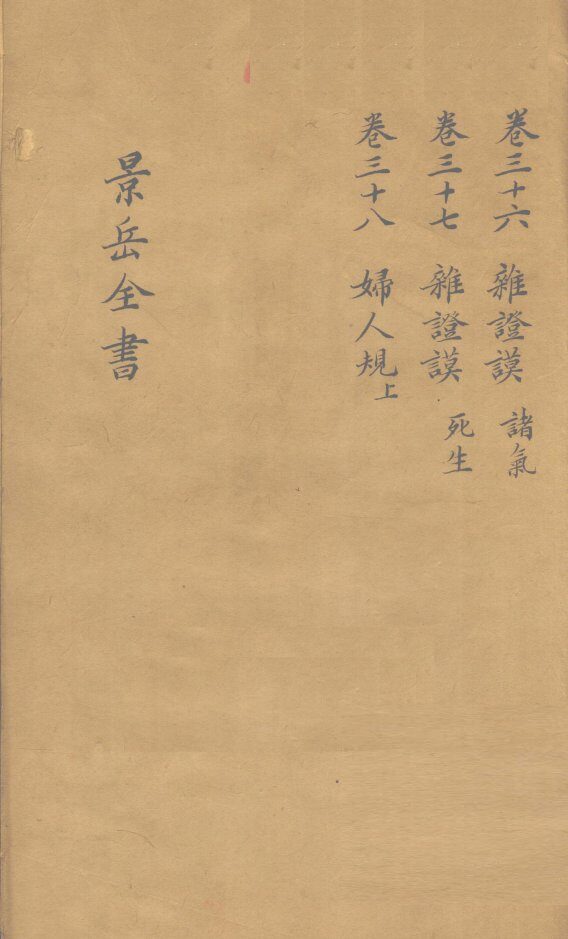 卷三十六 雜證謨 諸氣
卷三十七 雜證謨 死生
卷三十八 婦人規上
景岳全書